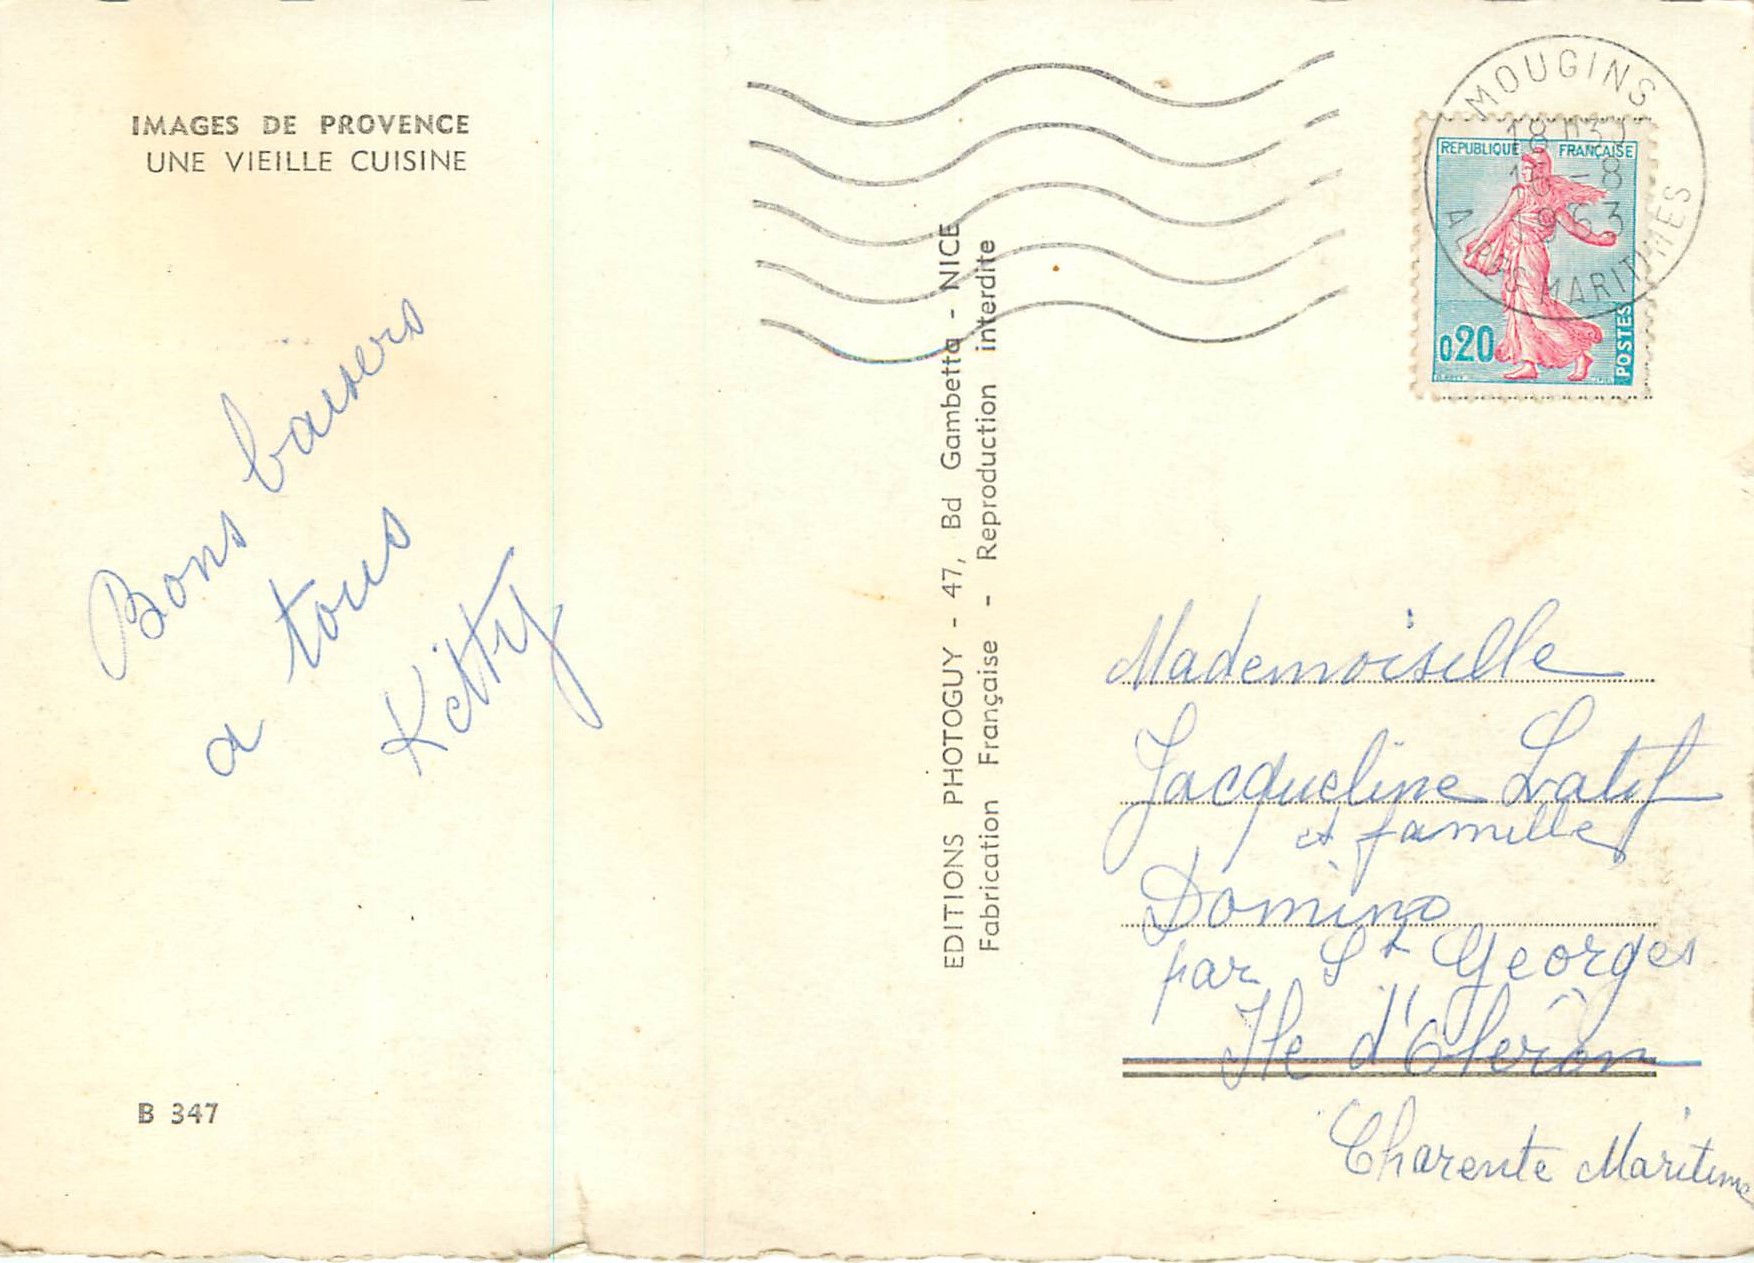 IMAGES DE PROVENCE
UNE VIEILLE CUISINE
Bons baisers
a tous
Kitty
B 347
EDITIONS PHOTOGUY - 47, Bd Gambetta - NICE
Fabrication Française - Reproduction interdite
MOUGINS
18 H30
-8
1963
ALPES MARITIMES
REPUBLIQUE FRANÇAISE
0,20
POSTES
Mademoiselle
Jacqueline Latif
et famille
Domino
par St Georges
Ile d'Oleròn
Charente Maritime